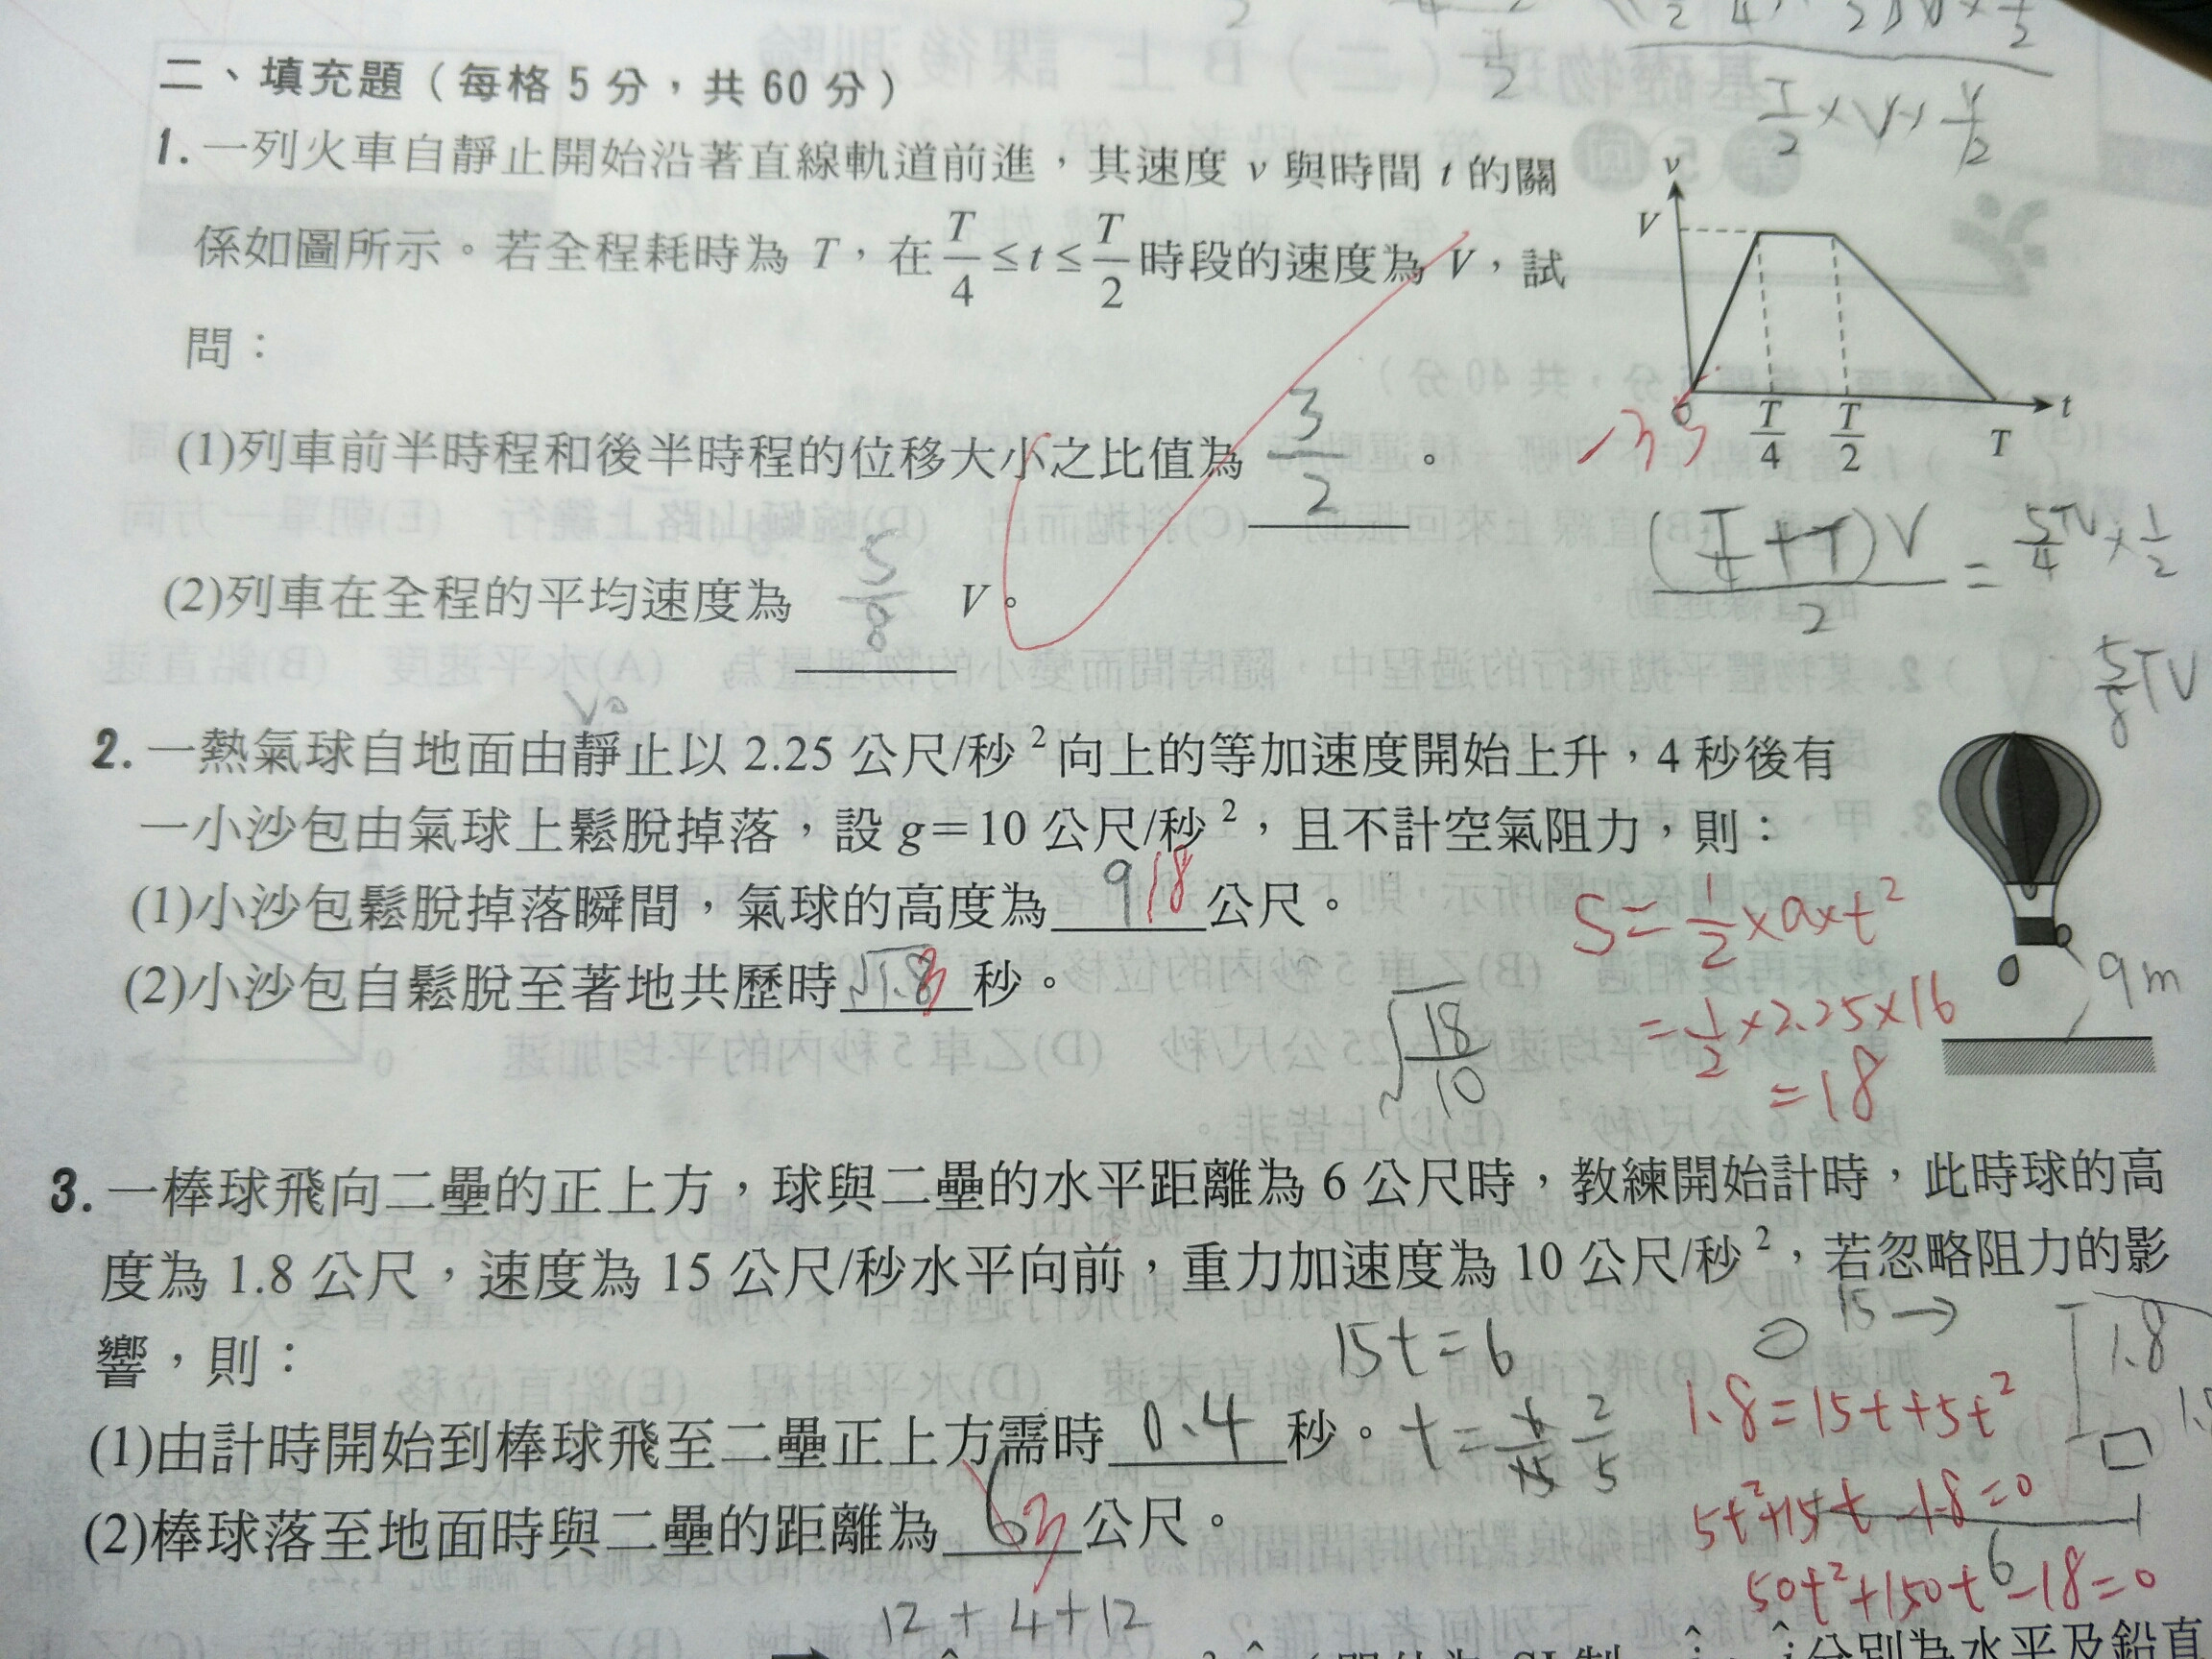 二、填充題(每格 5 分,共 60 分)
1. 一列火車自靜止開始沿著直線軌道前進,其速度 v 與時間 t 的關
係如圖所示。若全程耗時為 T,在 T/4 ≤ t ≤ T/2 時段的速度為 V,試
問:
(1)列車前半時程和後半時程的位移大小之比值為 3/2 。
(2)列車在全程的平均速度為 5/8 V。
v
V
0 T/4 T/2 T t
-35
(T/4+T)V/2 = 5/4 TV × 1/2
5/8 TV
2. 一熱氣球自地面由靜止以 2.25 公尺/秒² 向上的等加速度開始上升,4 秒後有
一小沙包由氣球上鬆脫掉落,設 g=10 公尺/秒²,且不計空氣阻力,則:
(1)小沙包鬆脫掉落瞬間,氣球的高度為 9 18 公尺。
(2)小沙包自鬆脫至著地共歷時 √1.8 3 秒。
S = 1/2 × a × t²
= 1/2 × 2.25 × 16
= 18
9m
√18/10
3. 一棒球飛向二壘的正上方,球與二壘的水平距離為 6 公尺時,教練開始計時,此時球的高
度為 1.8 公尺,速度為 15 公尺/秒水平向前,重力加速度為 10 公尺/秒²,若忽略阻力的影
響,則:
(1)由計時開始到棒球飛至二壘正上方需時 0.4 秒。
(2)棒球落至地面時與二壘的距離為 6 3 公尺。
15t=6
t = 6/15 2/5
15 →
1.8
1.8=15t+5t²
5t²+15t-1.8=0
6
50t²+150t-18=0
12 + 4 + 12